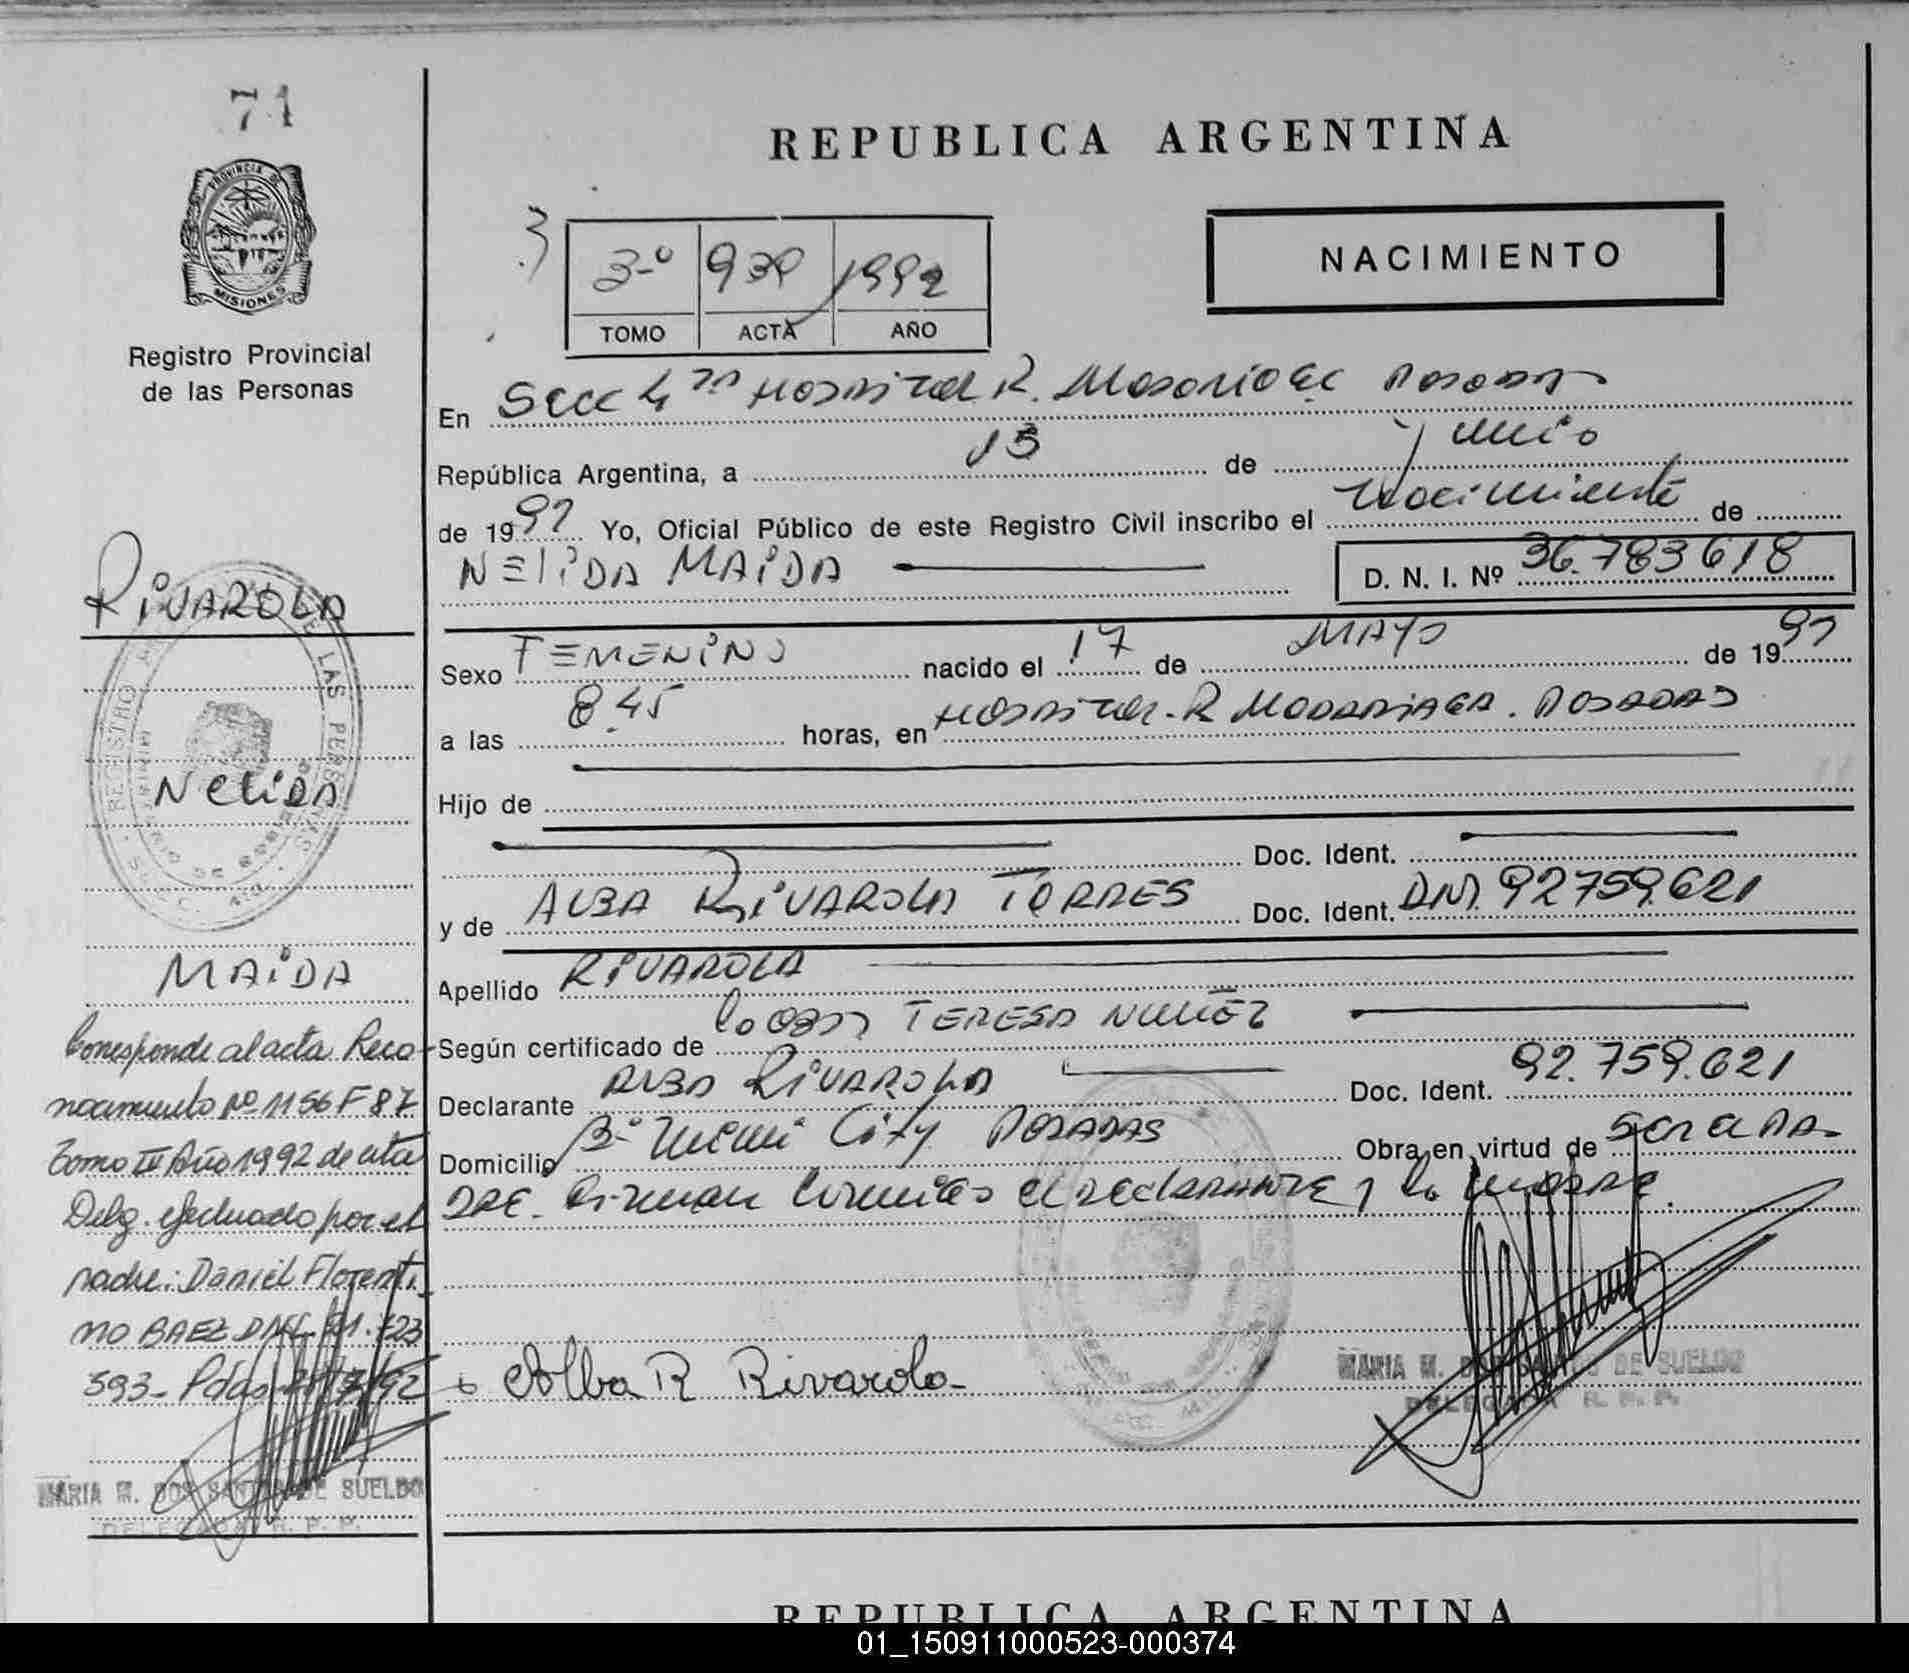 71
PROVINCIA DE
MISIONES
Registro Provincial
de las Personas
REPUBLICA ARGENTINA
NACIMIENTO
3º 939 1992
TOMO ACTA AÑO
En Secc 4ta Hospital R. Madariaga Posadas
República Argentina, a 15 de junio
de 1992 Yo, Oficial Público de este Registro Civil inscribo el nacimiento de
NELIDA MAIDA
D. N. I. Nº 36.783618
Sexo FEMENINO nacido el 17 de MAYO de 1992
a las 8.45 horas, en Hospital. R MADARIAGA. POSADAS
Hijo de
Doc. Ident.
y de ALBA RIVAROLA TORRES Doc. Ident. DNI. 92759.621
Apellido RIVAROLA
Según certificado de TERESA NUÑEZ
Declarante ALBA RIVAROLA Doc. Ident. 92.759.621
Domicilio Bº Miami City POSADAS Obra en virtud de
DRE. Firman el declarante y la madre.
Alba R Rivarola
MARIA M. DOS SANTOS DE SUELDO
DELEGADA R. P. P.
RIVAROLA
Nelida
MAIDA
Corresponde al acta Reco-
nocimiento Nº 1156 F 87
Tomo III Año 1992 de esta
Deleg. efectuado por el
padre: Daniel Florenti-
no BAEZ DNI. 21.723
593- Pdas
MARIA M. DOS SANTOS DE SUELDO
DELEGADA R. P. P.
REPUBLICA ARGENTINA
01_150911000523-000374